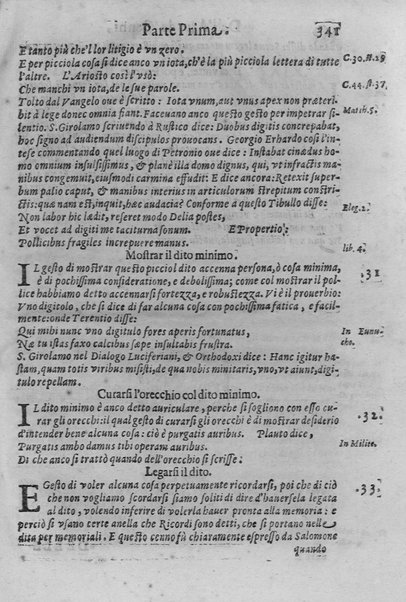 Parte Prima. 341
E tanto più che'l lor litigio è vn zero.
E per picciola cosa si dice anco vn iota, ch'è la più picciola lettera di tutte C.30.st.29
l'altre. L'Ariosto così l'vsò:
Che manchi vn iota, de le sue parole. C.44.st.37.
Tolto dal Vangelo oue è scritto: Iota vnum, aut vnus apex non præteri- Matth.5.
bit à lege donec omnia fiant. Faceuano anco questo gesto per impetrar si-
lentio. S. Girolamo scriuendo à Rustico dice: Duobus digitis concrepabat,
hoc signo ad audiendum discipulos prouocans. Georgio Erhardo così l'in-
tese commentando quel luogo di Petronio oue dice: Instabat cinædus ho-
mo omnium insulsissimus, & planè illa domo dignus, qui, vt infractis ma-
nibus congemuit, eiusmodi carmina effudit: E dice ancora: Retexit super-
bum palio caput, & manibus interius in articulorum strepitum constri-
ctis: quæ nam est, inquit, hæc audacia? Conforme a questo Tibullo disse:
Non labor hic lædit, reseret modo Delia postes, Eleg.2.
Et vocet ad digiti me taciturna sonum. E Propertio:
Pollicibus fragiles increpuere manus. lib. 4.
Mostrar il dito minimo.
IL gesto di mostrar questo picciol dito accenna persona, ò cosa minima, 31
è di pochissima consideratione, e debolissima; come col mostrar il pol-
lice habbiamo detto accennarsi fortezza, e robustezza. Vi è il prouerbio:
Vno digitolo, che si dice di far alcuna cosa con pochissima fatica, e facil-
mente: onde Terentio disse:
Qui mihi nunc vno digitulo fores aperis fortunatus, In Eunu-
Næ tu istas faxo calcibus sæpe insultabis frustra. cho.
S. Girolamo nel Dialogo Luciferiani, & Orthodoxi dice: Hanc igitur ha-
stam, quam totis viribus misisti, de qua nobis minitaris, vno, vt aiunt, digi-
tulo repellam.
Curarsi l'orecchio col dito minimo.
IL dito minimo è anco detto auriculare, perche si sogliono con esso cu- 32.
rar gli orecchi: il qual gesto di curarsi gli orecchi è di mostrar desiderio
d'intender bene alcuna cosa: ciò è purgatis auribus. Plauto dice, In Milite.
Purgatis ambo damus tibi operam auribus.
Di che anco si trattò quando dell'orecchio si scrisse.
Legarsi il dito.
E Gesto di voler alcuna cosa perpetuamente ricordarsi, poi che di ciò 33.
che non vogliamo scordarsi siamo soliti di dire d'hauersela legata
al dito, volendo inferire di volerla hauer pronta alla memoria: e
perciò si vsano certe anella che Ricordi sono detti, che si portano nelle
dita per memoriali. E questo cennofù chiaramente espresso da Salomone
quando